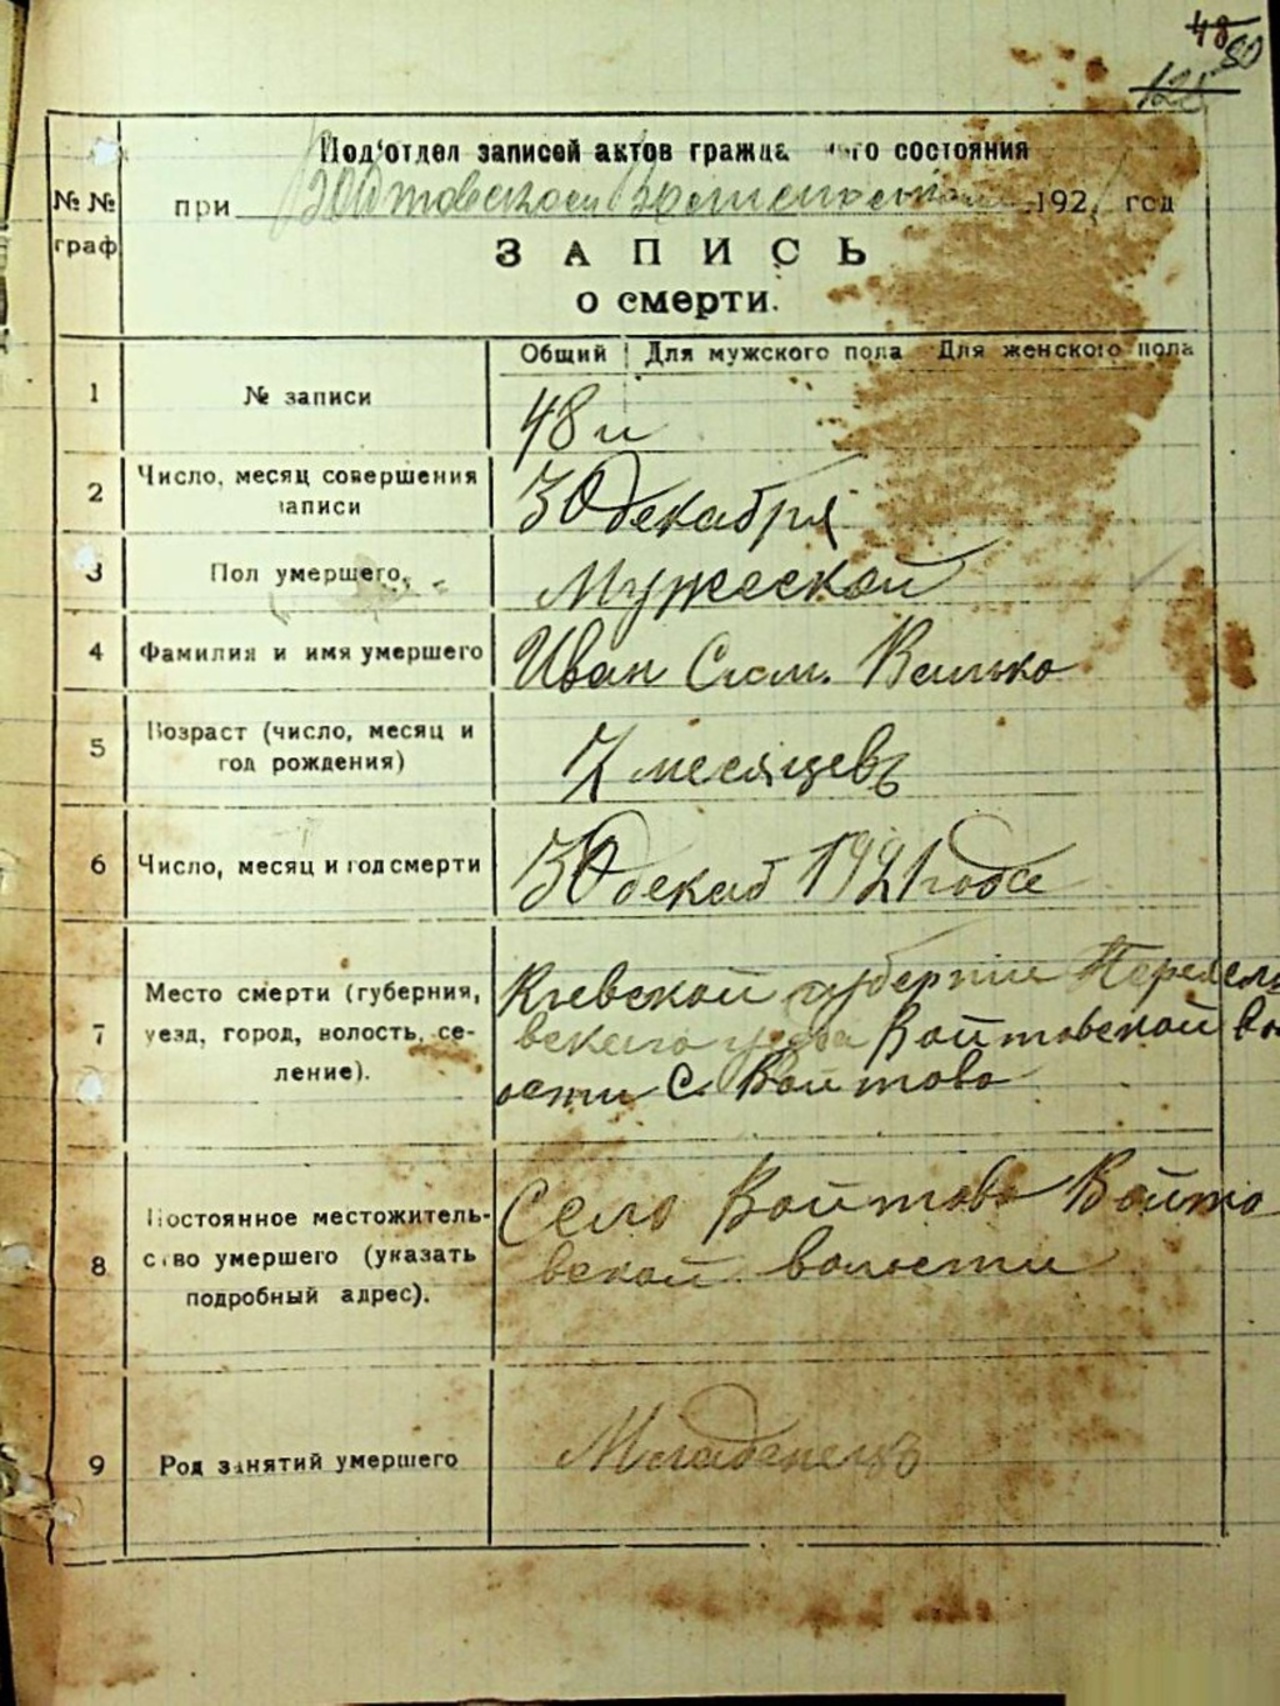 48
80
125
Под'отдел записей актов гражда го состояния
№ №
граф
при Войтовском Волисполкоме 192 год
ЗАПИСЬ
о смерти.
Общий Для мужского пола Для женского пола
1 № записи 48 и
2 Число, месяц совершения
записи
30 декабря
3 Пол умершего. Мужеской
4 Фамилия и имя умершего Иван Велько
5 Возраст (число, месяц и
год рождения)
7 месяцевъ
6 Число, месяц и год смерти 30 декаб 1921 года
7 Место смерти (губерния,
уезд, город, волость, се-
ление).
Киевской губернии
вского уезда Войтовской
ости С. Войтово
8 Постоянное местожитель-
ство умершего (указать
подробный адрес).
Село Войтово Войто
вской волости
9 Род занятий умершего Младенецъ